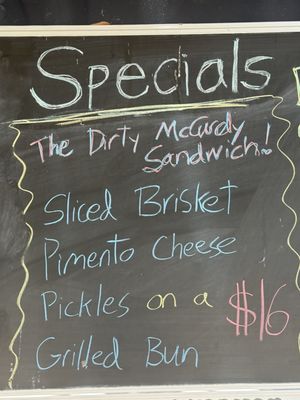 Specials
The Dirty McCardy
Sandwich!
Sliced Brisket
Pimento Cheese
Pickles on a $16
Grilled Bun